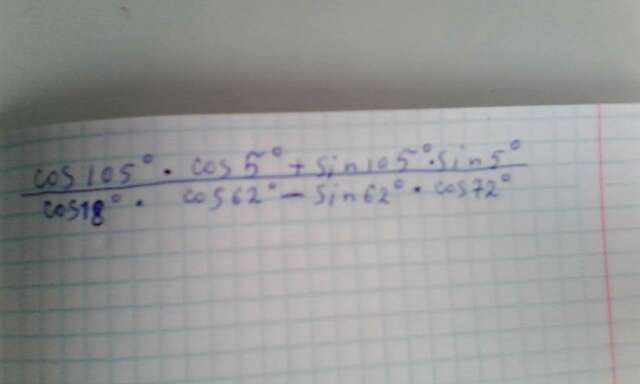 cos 105° · cos 5° + sin 105° · sin 5°
cos 18° · cos 62° − sin 62° · cos 72°